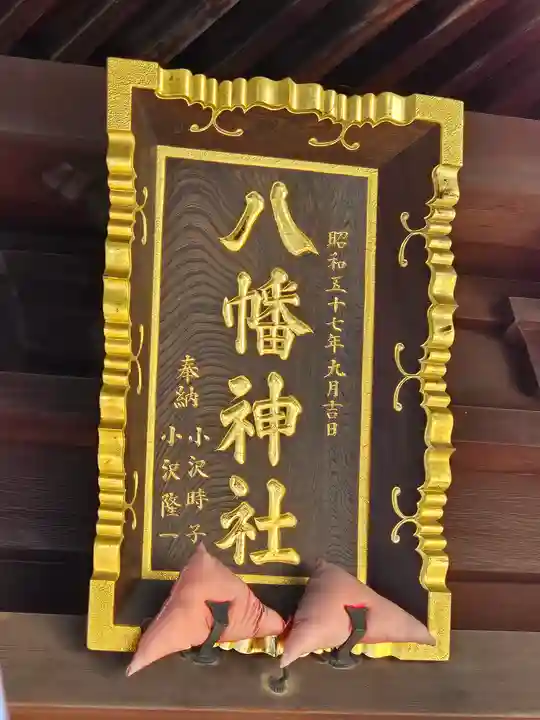 昭和五十七年九月吉日
八幡神社
奉納 小沢時子
小沢隆一